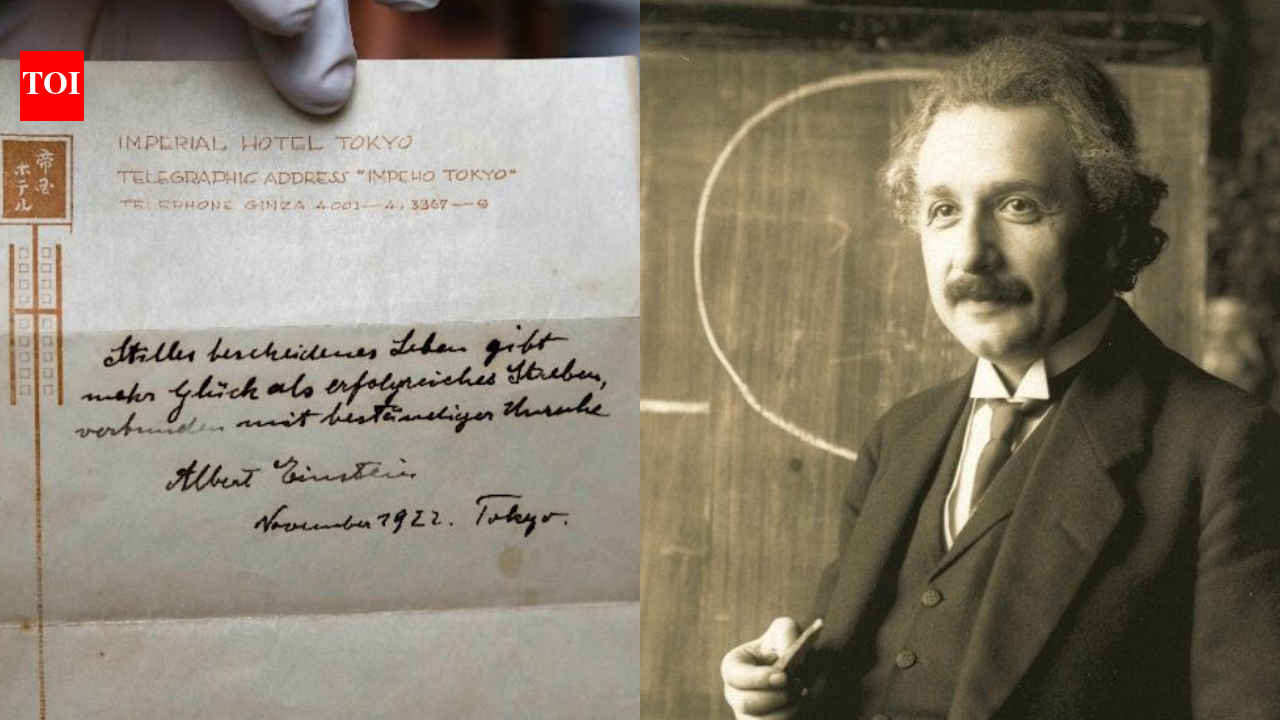 TOI
IMPERIAL HOTEL TOKYO
TELEGRAPHIC ADDRESS "IMPEHO TOKYO"
TELEPHONE GINZA 4001—4, 3367—9
帝国
ホテル
Stilles bescheidenes Leben gibt
mehr Glück als erfolgreiches Streben,
verbunden mit beständiger Unruhe
Albert Einstein
November 1922. Tokyo.